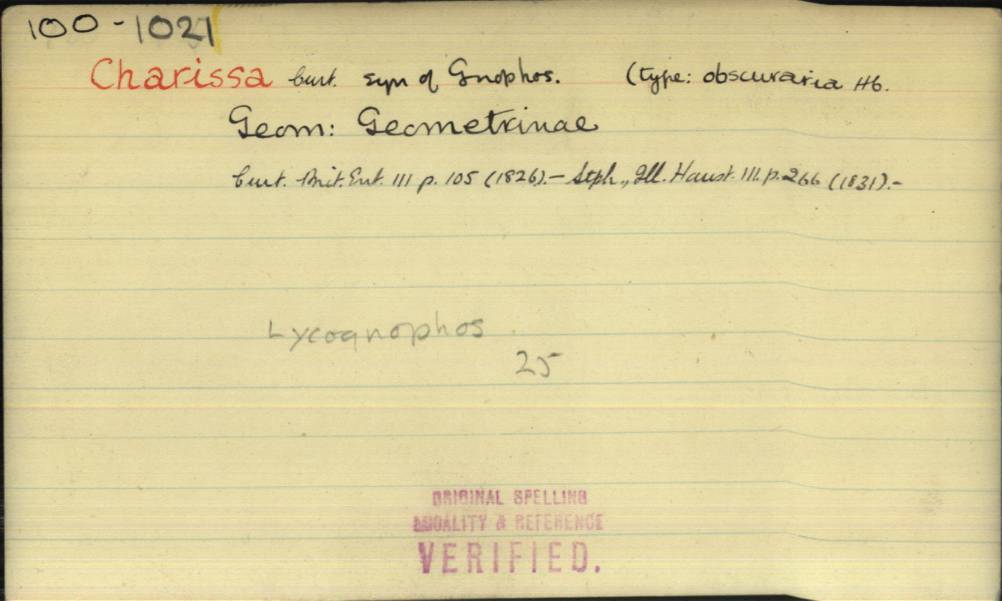 100-1021
Charissa Curt. syn of Gnophos. (type: obscuraria Hb.
Geom: Geometrinae
Curt. Brit. Ent. III p. 105 (1826).- Steph., Ill. Haust. III. p. 266 (1831).-
Lycognophos
25
ORIGINAL SPELLING
& REFERENCE
VERIFIED.